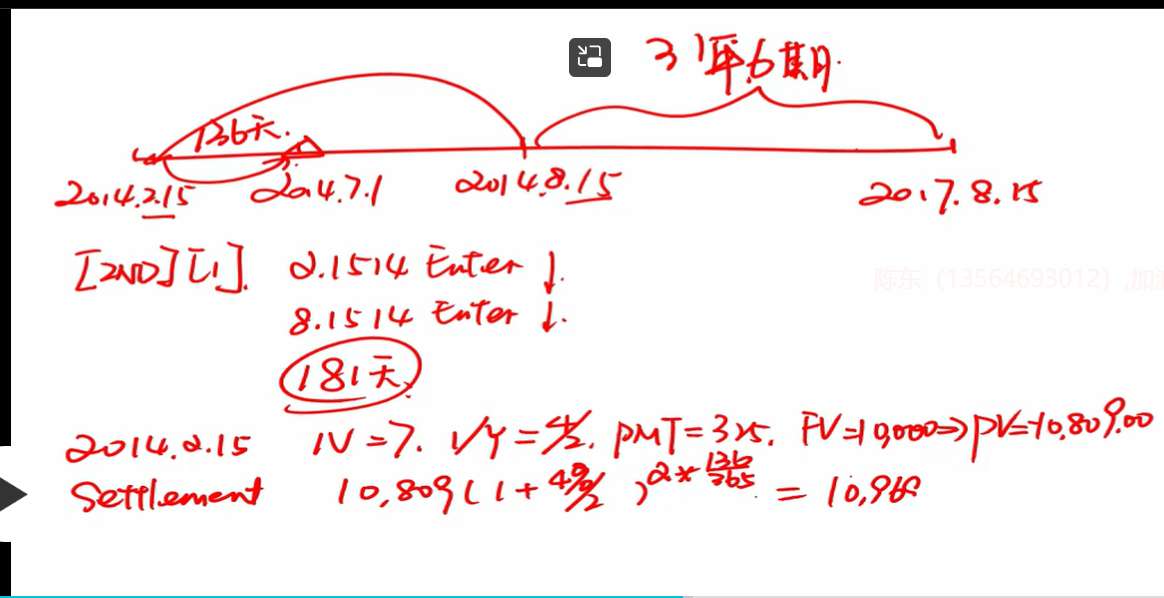 3年6期.
136天.
2014.2.15 2014.7.1 2014.8.15 2017.8.15
[2ND][1]. 2.1514 Enter ↓.
8.1514 Enter ↓.
181天
陈东（13564693012）,加
2014.2.15 N=7. I/Y=4/2. PMT=325. FV=10,000=>PV=-10,809.00
Settlement 10,809(1+4%/2)^2*136/365 = 10,968